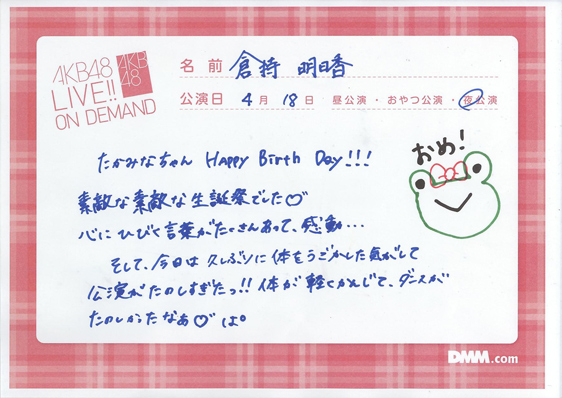 AKB48
LIVE!!
ON DEMAND
AKB
48
名前 倉持 明日香
公演日 4月 18日 昼公演・おやつ公演・夜公演
おめ!
たかみなちゃん Happy Birth Day!!!
素敵な素敵な生誕祭でした♡
心にひびく言葉がたくさんあって、感動…
そして、今日は久しぶりに体をうごかした気がして
公演がたのしすぎたっ!! 体が軽くかんじて、ダンスが
たのしかったなあ♡ は。
DMM.com